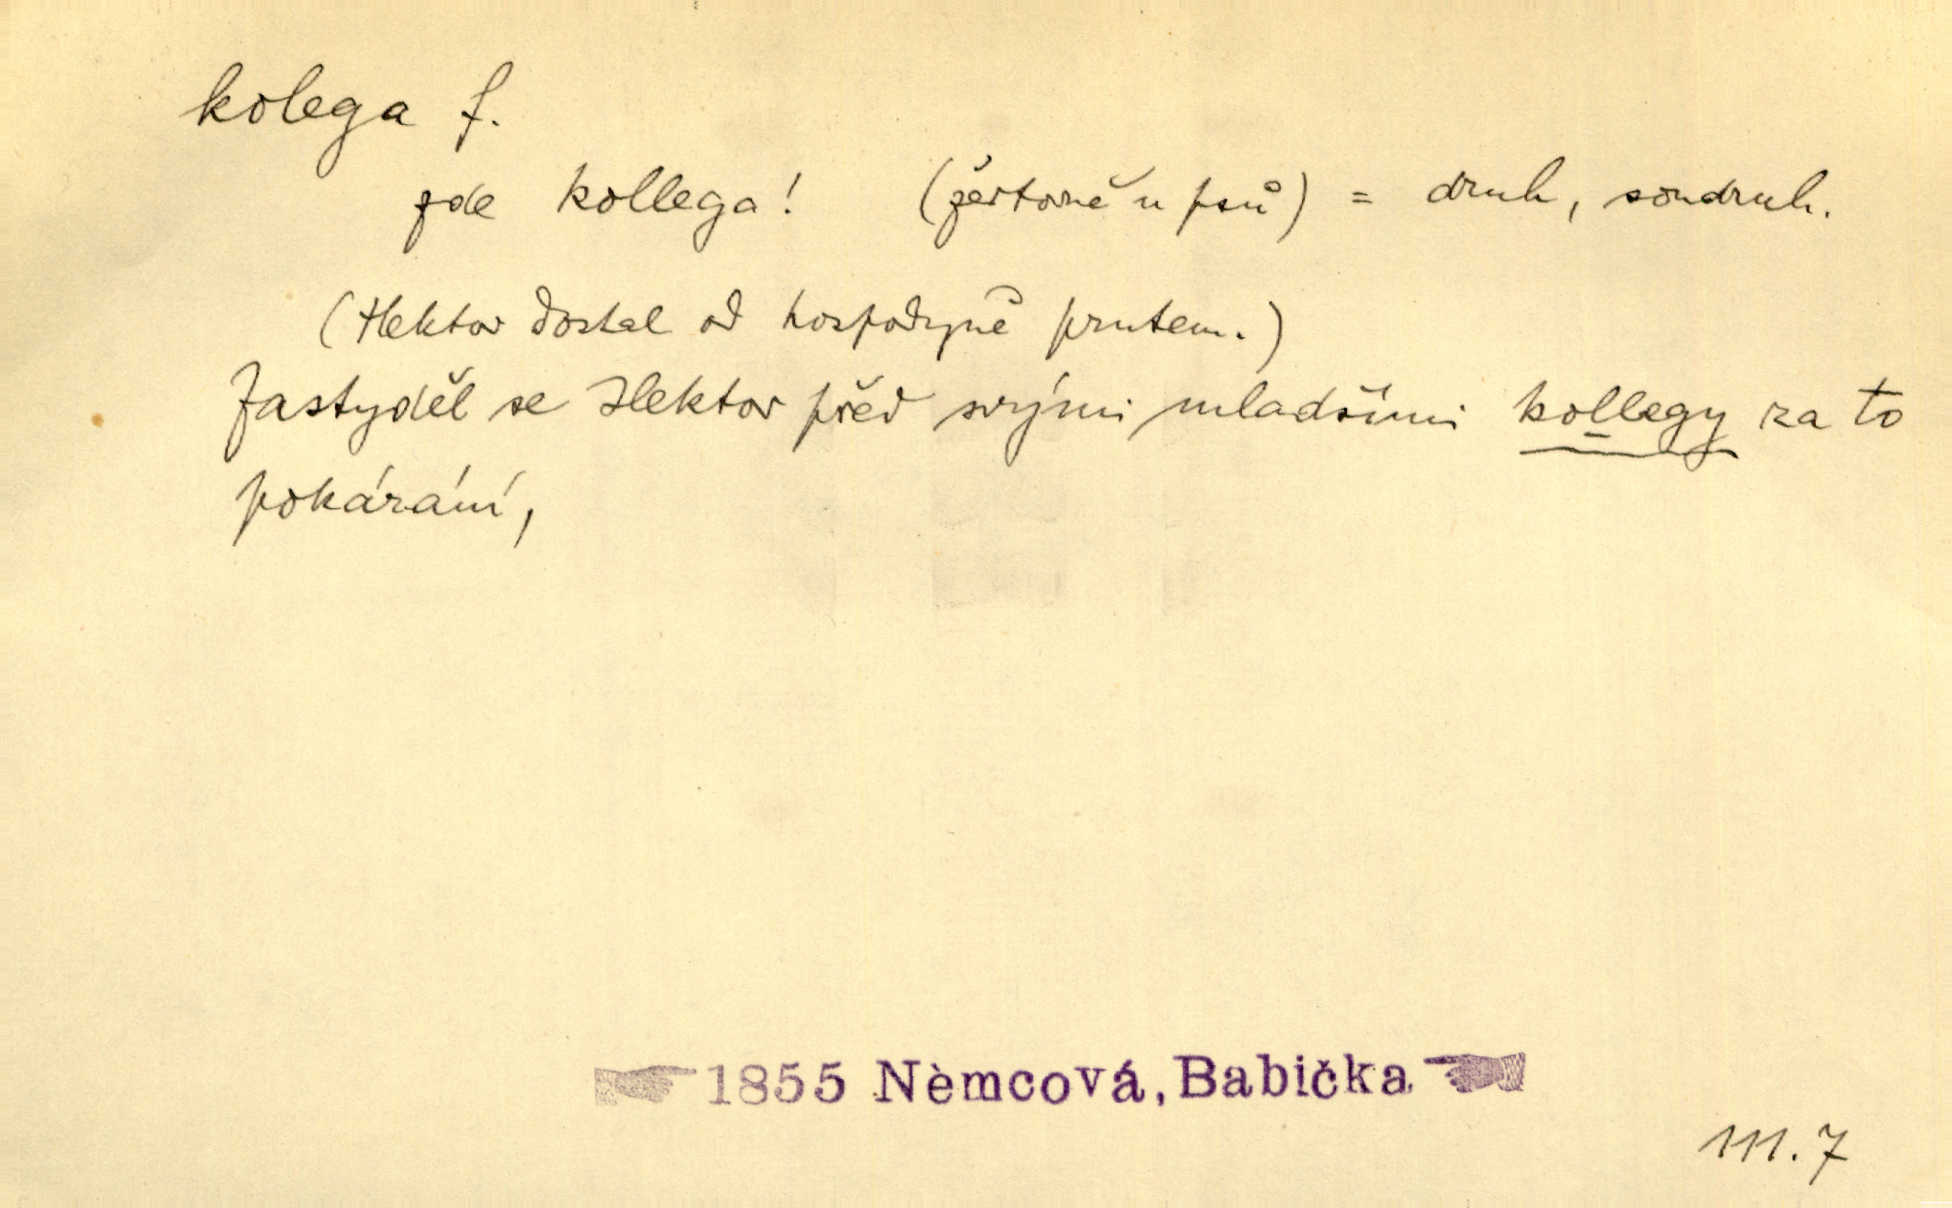 kolega f.
zde kollega! (žertovně u psů) = druh, soudruh.
(Hektor dostal od hospodyně prutem.)
Zastyděl se Hektor před svými mladšími kollegy za to
pokárání,
1855 Nèmcová, Babička
111.7